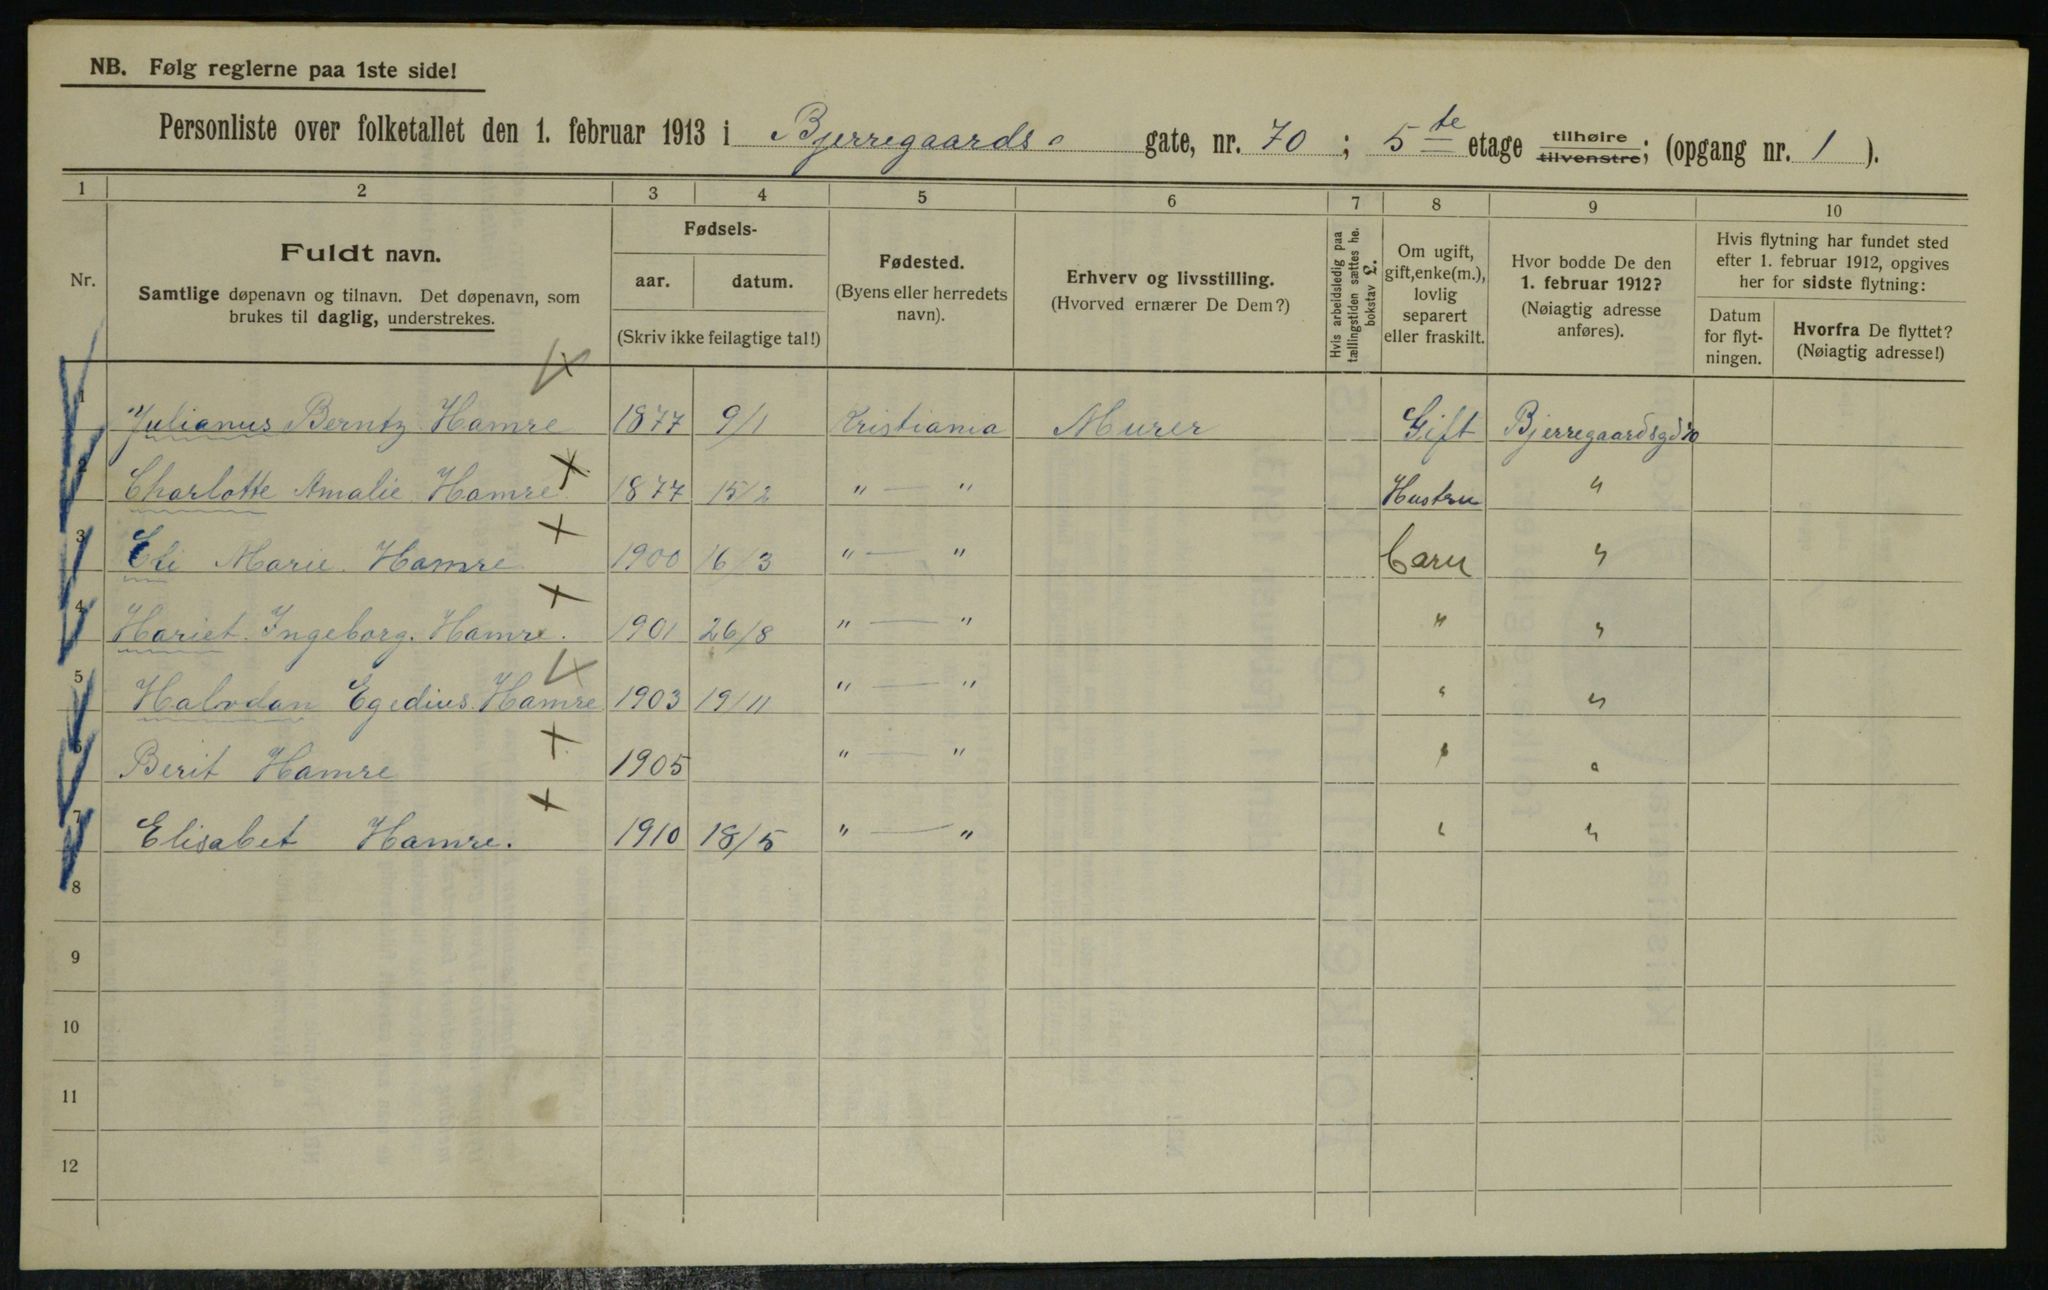 NB. Følg reglerne paa 1ste side!
Personliste over folketallet den 1. februar 1913 i Bjerregaards gate, nr. 70 ; 5te etage tilhøire tilvenstre; (opgang nr. 1 ).
1 2 3 4 5 6 7 8 9 10
Nr.
Fuldt navn.
Samtlige døpenavn og tilnavn. Det døpenavn, som
brukes til daglig, understrekes.
Fødsels-
aar. datum.
(Skriv ikke feilagtige tal!)
Fødested.
(Byens eller herredets
navn).
Erhverv og livsstilling.
(Hvorved ernærer De Dem?)
Hvis arbeidsledig paa
tællingstiden sættes he.
bokstav L.
Om ugift,
gift, enke(m.),
lovlig
separert
eller fraskilt.
Hvor bodde De den
1. februar 1912?
(Nøiagtig adresse
anføres).
Hvis flytning har fundet sted
efter 1. februar 1912, opgives
her for sidste flytning:
Datum
for flyt-
ningen.
Hvorfra De flyttet?
(Nøiagtig adresse!)
1 Julianus Berntz Hamre 1877 9/1 Kristiania Murer Gift Bjerregaardsgd 70
2 Charlotte Amalie Hamre 1877 15/2 " — " Hustru "
3 Eli Marie Hamre 1900 16/3 " — " Barn "
4 Hariet Ingeborg Hamre. 1901 26/8 " — " " "
5 Halvdan Egedius Hamre 1903 19/11 " — " " "
6 Berit Hamre 1905 " — " " "
7 Elisabet Hamre. 1910 18/5 " — " " "
8
9
10
11
12